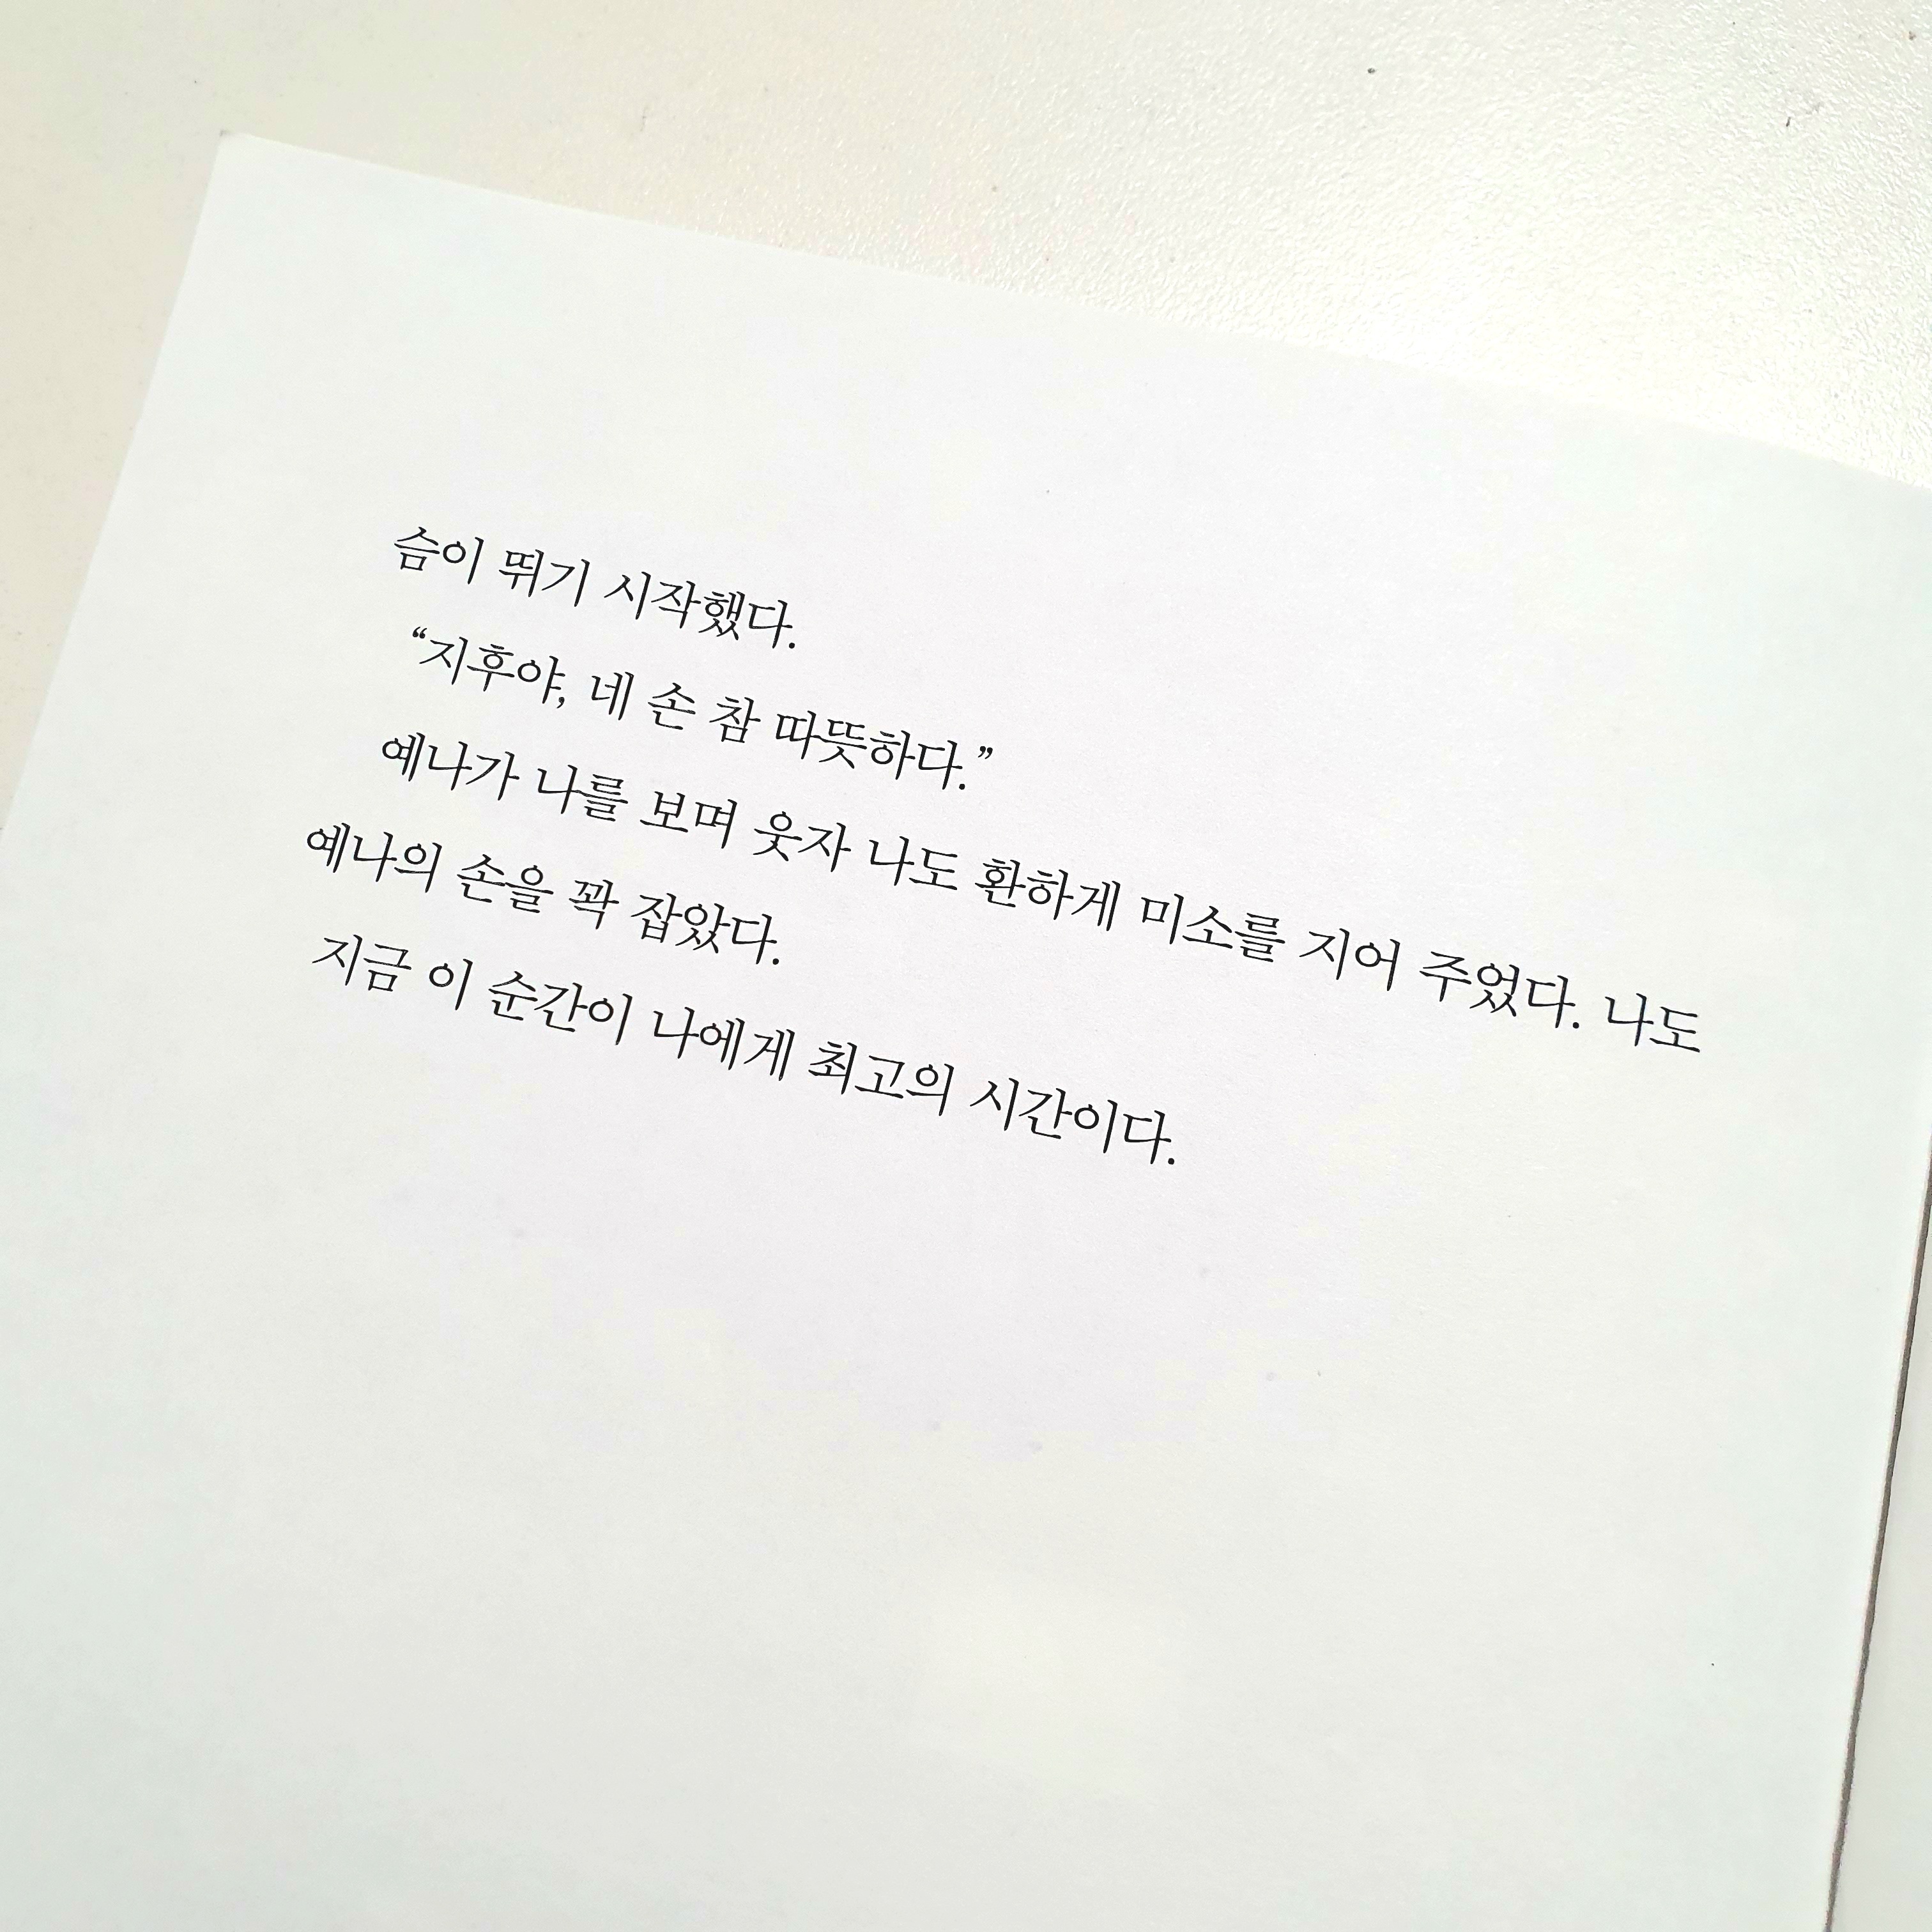 슴이 뛰기 시작했다.
“지후야, 네 손 참 따뜻하다.”
예나가 나를 보며 웃자 나도 환하게 미소를 지어 주었다. 나도
예나의 손을 꽉 잡았다.
지금 이 순간이 나에게 최고의 시간이다.